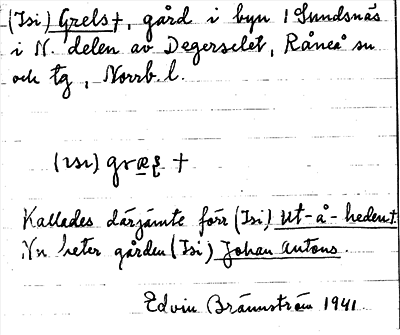 (Isi) Grels †, gård i byn 1 Sundsnäs
i N. delen av Degerselet, Råneå sn
och tg, Norrb. l.
(ɪsi) græʂ †
Kallades därjämte förr (Isi) Ut-å-heden †.
Nu heter gården (Isi) Johan Antons.
Edvin Brännström 1941.